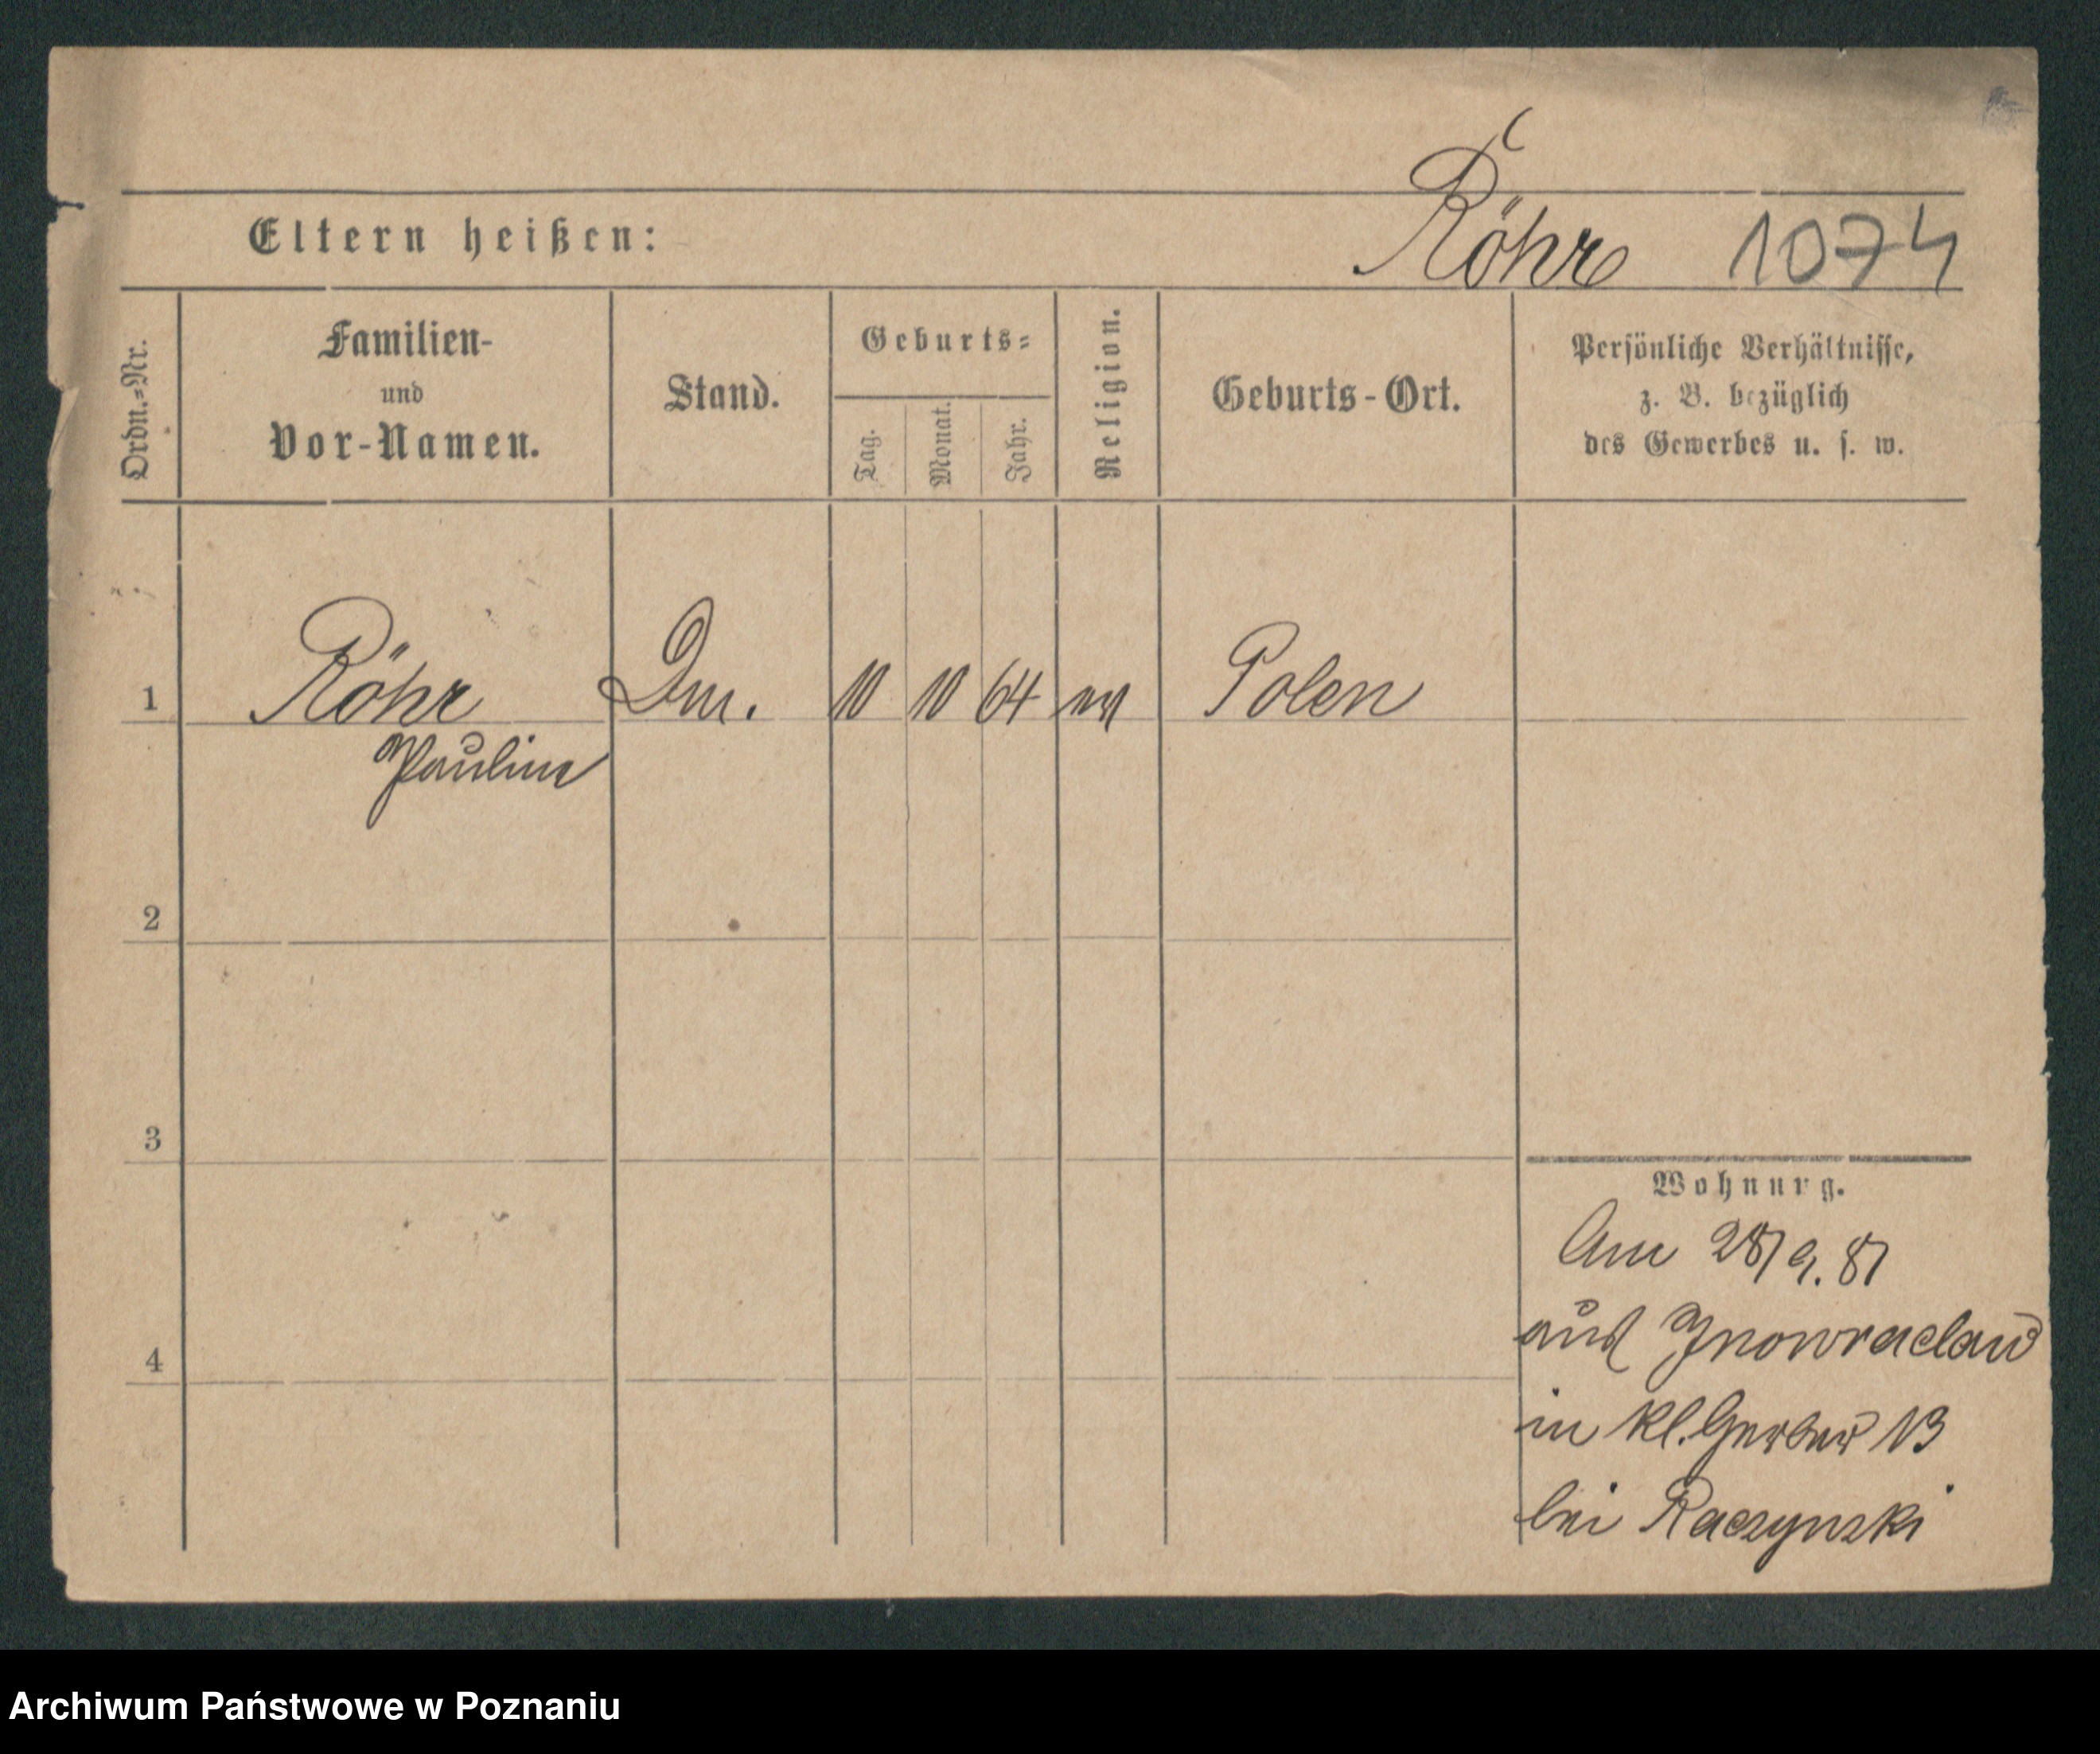 Röhr 1074
Eltern heißen:
Ordn.=Nr.
Familien-
und
Vor-Namen.
Stand.
Geburts=
Tag.
Monat.
Jahr.
Religion.
Geburts-Ort.
Persönliche Verhältnisse,
z. B. bezüglich
des Gewerbes u. s. w.
1 Röhr 10 10 64 Polen
Pauline
2
3
4
Wohnung.
Am 28/9. 81
aus Inowraclaw
in Kl. Gerber 13
bei Raczynski
Archiwum Państwowe w Poznaniu